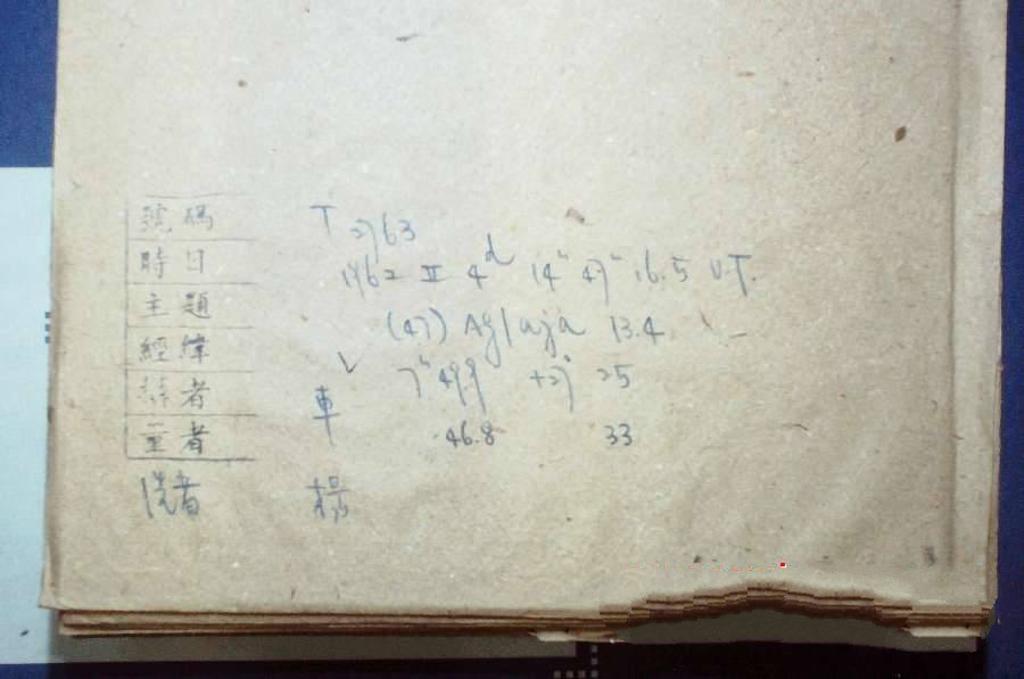 號碼 T 2763
時日 1962 II 4d 14h 47m 16.5 U.T.
主題 (47) Aglaja 13.4
經緯 √ 7h 49.9 +27° 25
者 車
量者 46.8 33
洗者 楊